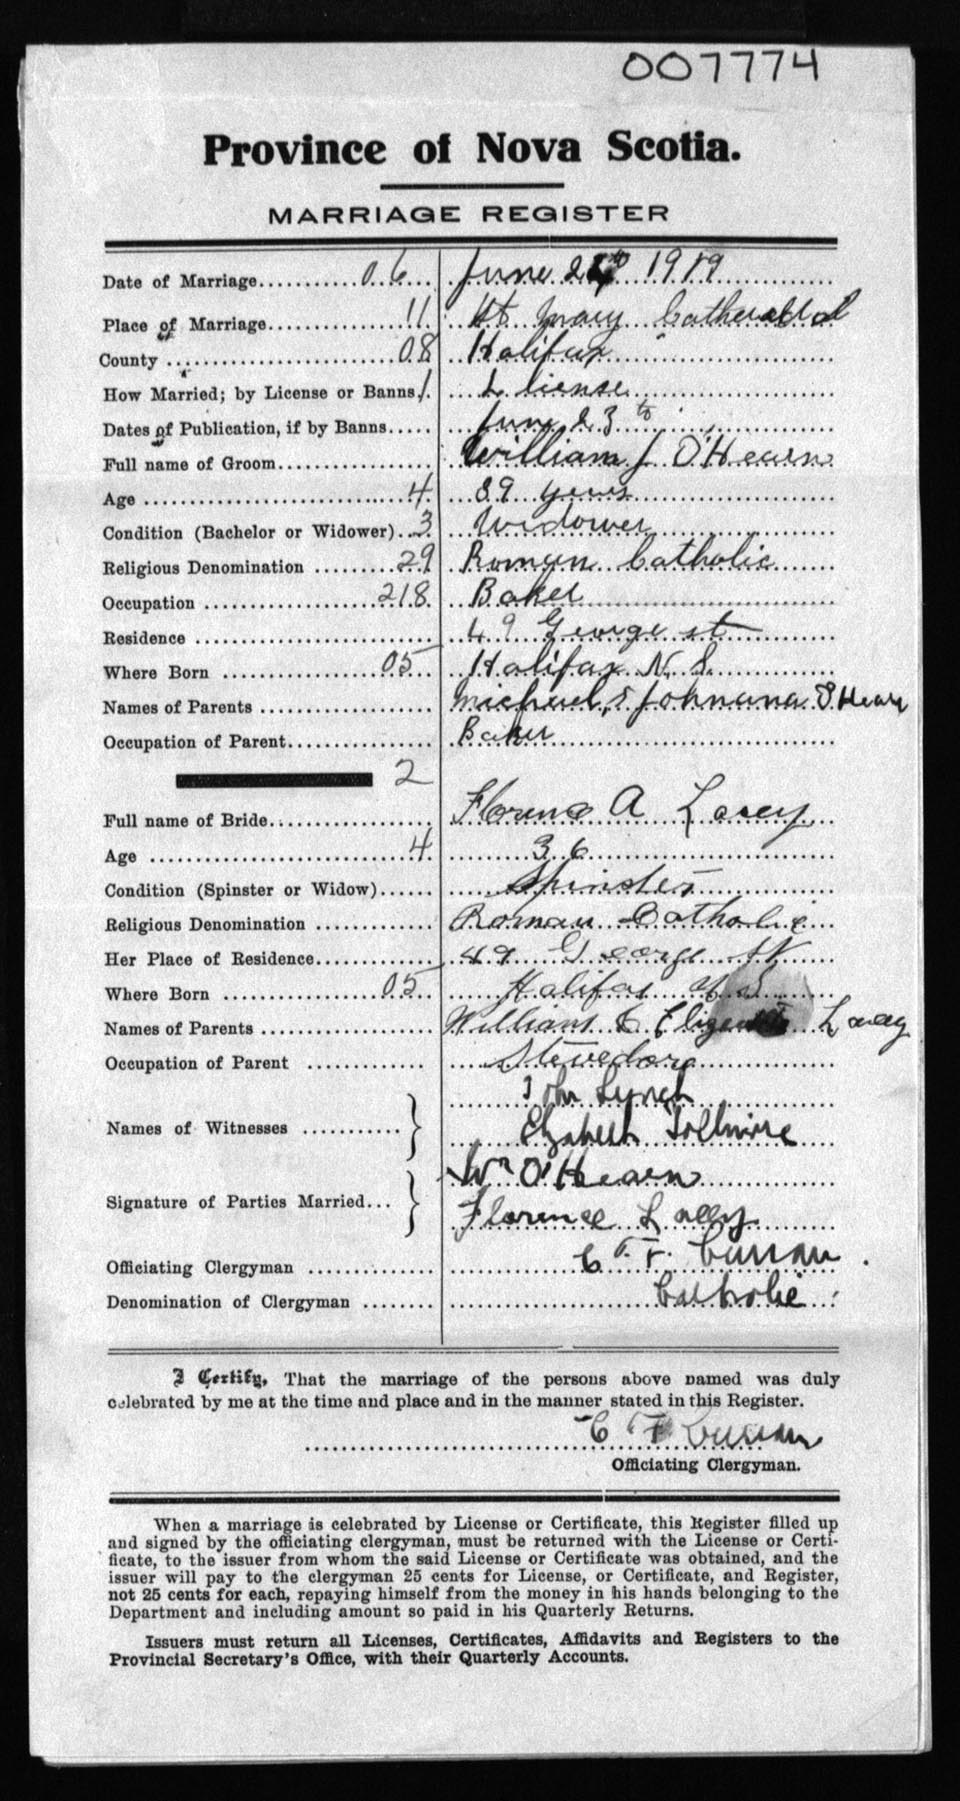 007774
Province of Nova Scotia.
MARRIAGE REGISTER
Date of Marriage 06 June 1919
Place of Marriage 11 St Mary Cathedral
County 08 Halifax
How Married; by License or Banns 1 License
Dates of Publication, if by Banns June 23
Full name of Groom William J O'Hearn
Age 4 39 years
Condition (Bachelor or Widower) 3 Widower
Religious Denomination 29 Roman Catholic
Occupation 218 Baker
Residence 49 George st
Where Born 05 Halifax N.S.
Names of Parents Michael & Johnana O'Hearn
Occupation of Parent Baker
2
Full name of Bride Florence A Lacey
Age 4 36
Condition (Spinster or Widow) Spinster
Religious Denomination Roman Catholic
Her Place of Residence 49 George St
Where Born 05 Halifax N S
Names of Parents William & Elizabeth Lacey
Occupation of Parent Stevedore
John Lynch
Names of Witnesses
Elizabeth
Wm O'Hearn
Signature of Parties Married
Florence Lacey
Officiating Clergyman C. F. Curran
Denomination of Clergyman Catholic
I Certify, That the marriage of the persons above named was duly
celebrated by me at the time and place and in the manner stated in this Register.
C F Curran
Officiating Clergyman.
When a marriage is celebrated by License or Certificate, this Register filled up
and signed by the officiating clergyman, must be returned with the License or Certi-
ficate, to the issuer from whom the said License or Certificate was obtained, and the
issuer will pay to the clergyman 25 cents for License, or Certificate, and Register,
not 25 cents for each, repaying himself from the money in his hands belonging to the
Department and including amount so paid in his Quarterly Returns.
Issuers must return all Licenses, Certificates, Affidavits and Registers to the
Provincial Secretary's Office, with their Quarterly Accounts.